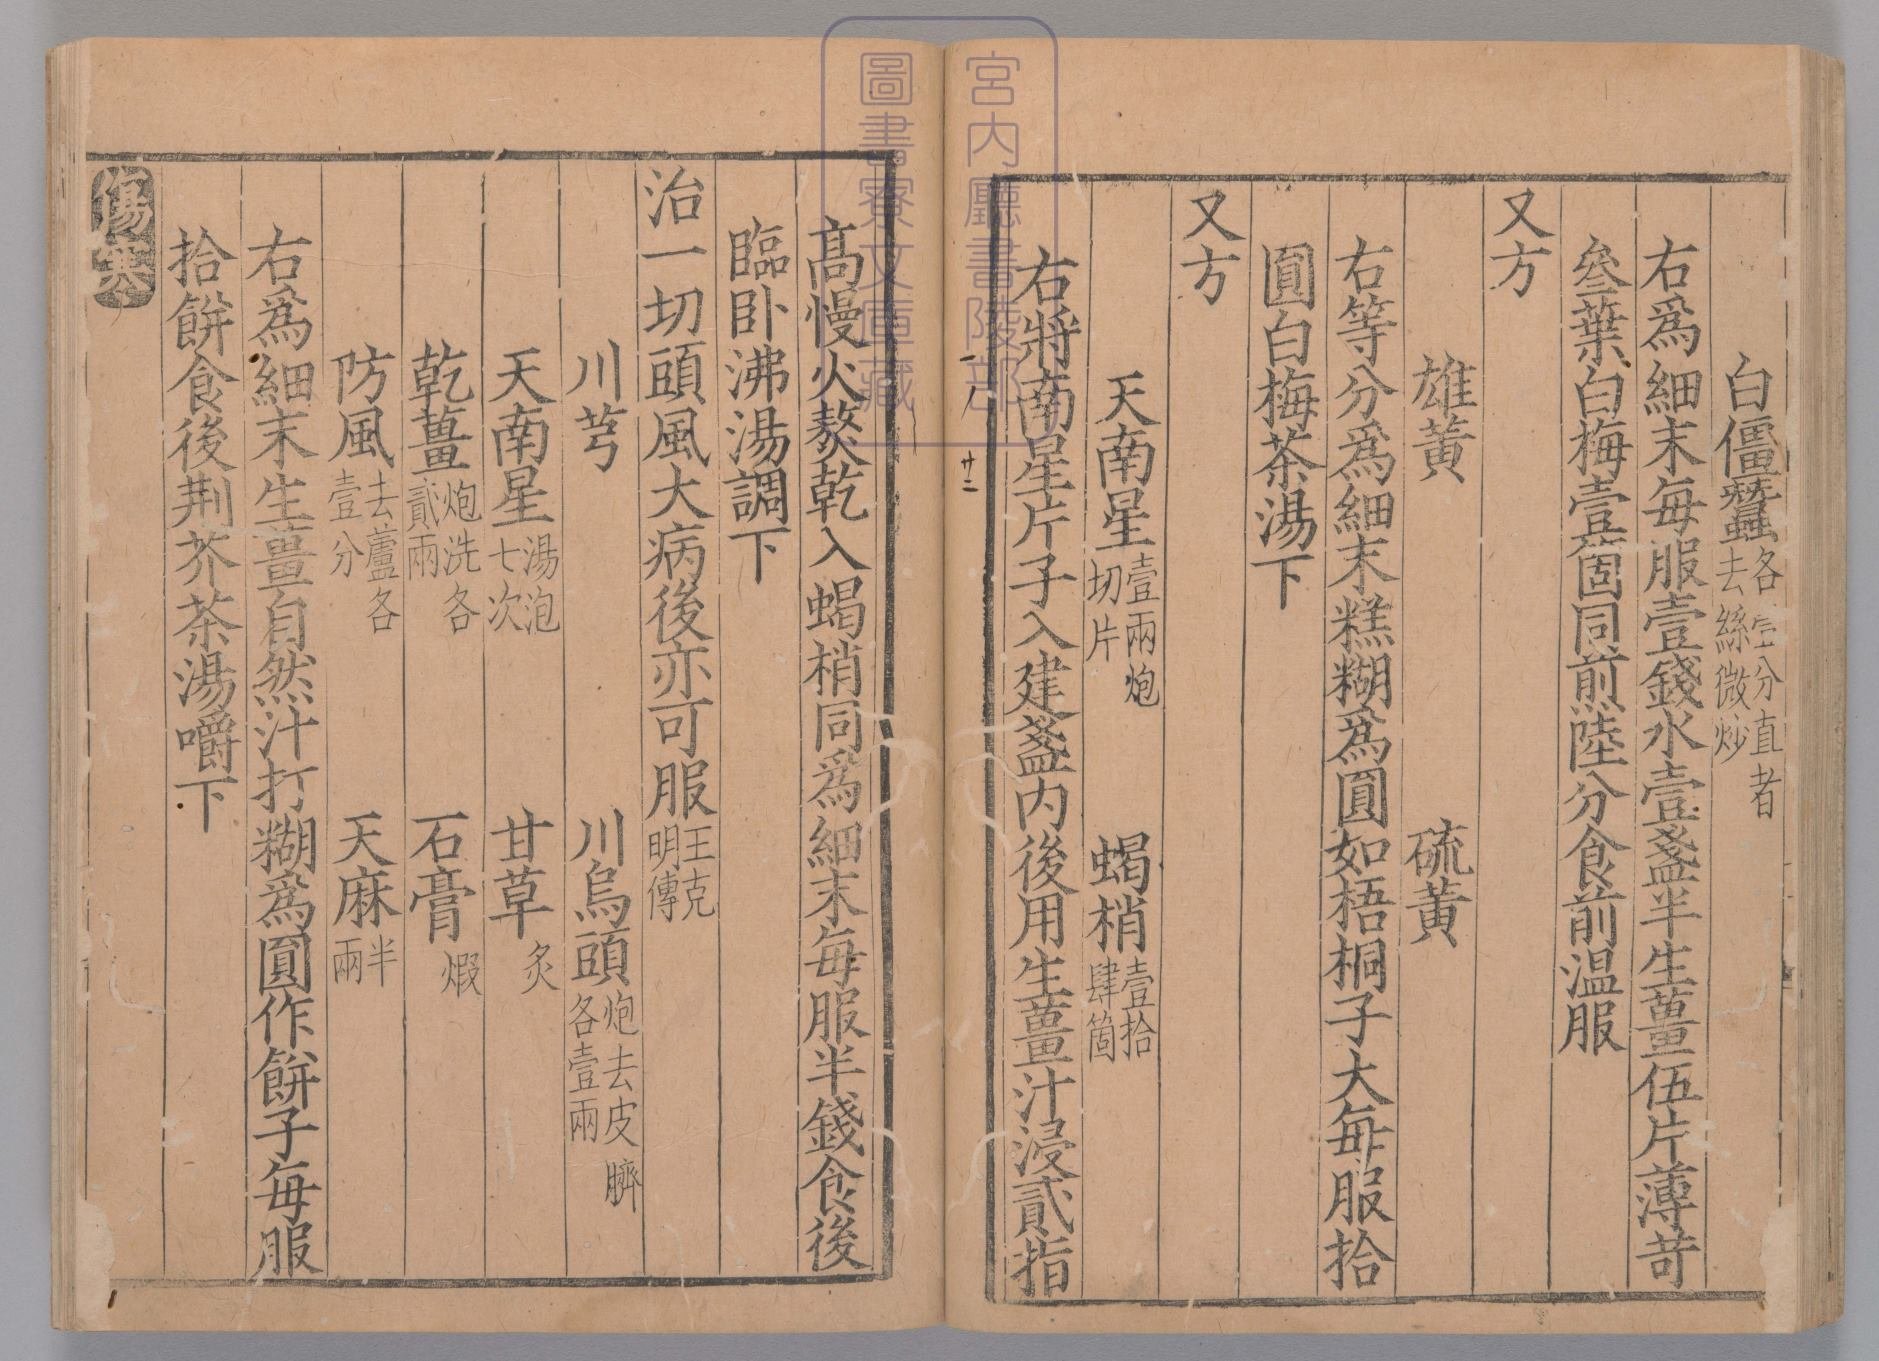 白僵蠶各壹分直者去絲微炒
右爲細末每服壹錢水壹盞半生薑伍片薄苛
叄葉白梅壹箇同煎陸分食前温服
又方
雄黃　硫黃
右等分爲細末糕糊爲圓如梧桐子大每服拾
圓白梅茶湯下
又方
天南星壹兩炮切片　蝎梢壹拾肆箇
右將南星片子入建盞内後用生薑汁浸貳指
高慢火熬乾入蝎梢同爲細末每服半錢食後
臨卧沸湯調下
治一切頭風大病後亦可服王克明傳
川芎　川烏頭炮去皮臍各壹兩
天南星湯泡七次　甘草炙
乾薑炮洗各貳兩　石膏煆
防風去蘆各壹分　天麻半兩
右爲細末生薑自然汁打糊爲圓作餅子每服
拾餅食後荆芥茶湯嚼下
傷寒
宮内廳書陵部
圖書寮文庫藏
廿二